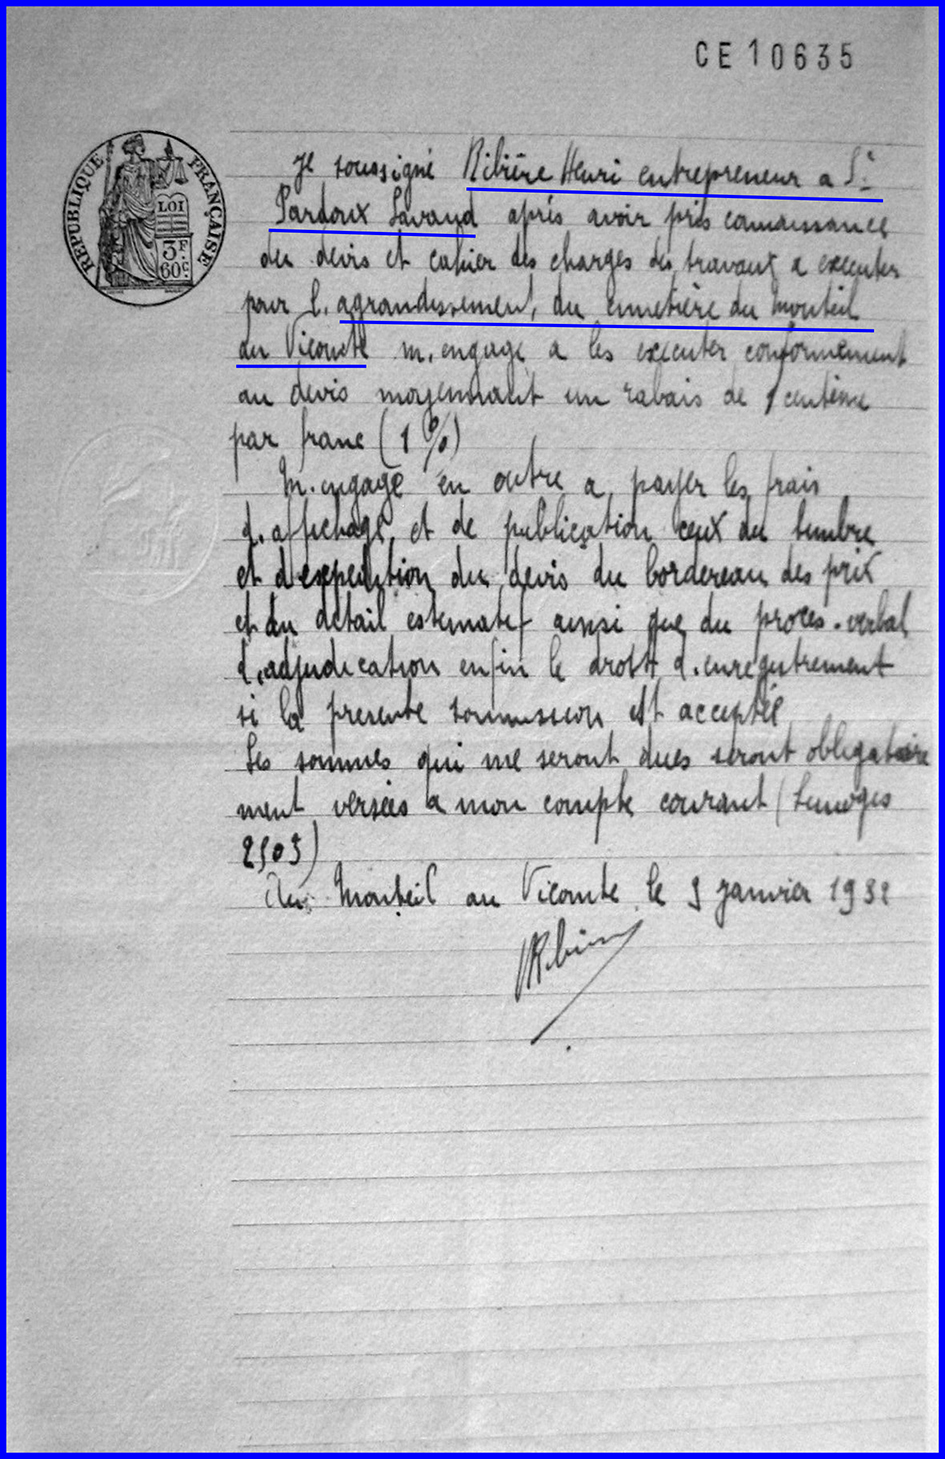 CE10635
RÉPUBLIQUE FRANÇAISE
LOI
3F
60c
Je soussigné Ribière Henri entrepreneur a St
Pardoux Lavaud aprés avoir pris connaissance
du devis et cahier des charges des travaux a executer
pour l'agrandissement du cimetière du Monteil
au Vicomte m'engage a les executer conformement
au devis moyennant un rabais de 1 centime
par franc (1 %)
M'engage en outre a payer les frais
d'affichage et de publication ceux du timbre
et d'expedition du devis du bordereau des prix
et du detail estimatif ainsi que du proces-verbal
d'adjudication enfin le droit d'enregistrement
si la presente soumission est acceptée
Les sommes qui me seront dues seront obligatoire
ment versées a mon compte courant (Limoges
2503)
Au Monteil au Vicomte le 9 janvier 1932
Ribière